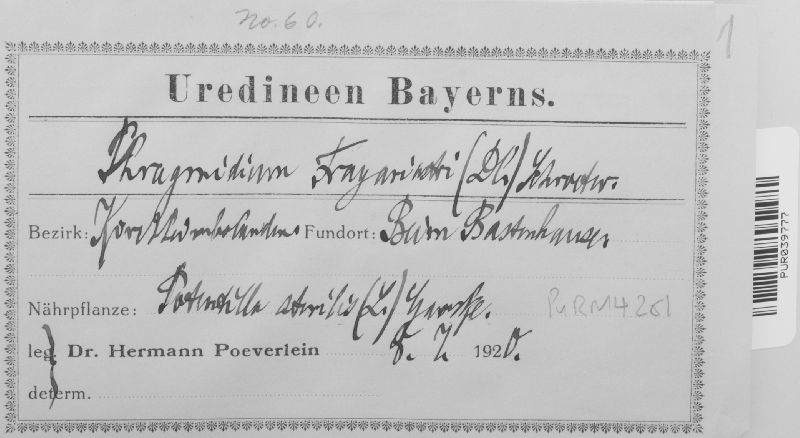 No. 60.
1
Uredineen Bayerns.
Phragmidium Fragariastri (DC.) Schroeter.
Bezirk: Kirchheimbolanden. Fundort: Beim Bastenhause.
Nährpflanze: Potentilla sterilis (L.) Garcke. PURM4261
leg. Dr. Hermann Poeverlein 8. 7. 1920.
determ.
PUR039777